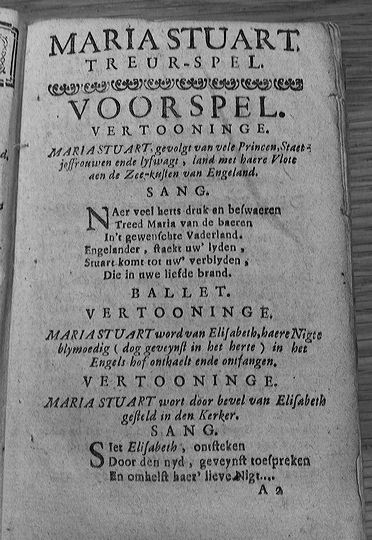 MARIA STUART.
TREUR-SPEL.
VOORSPEL.
VERTOONINGE.
MARIA STUART, gevolgt van vele Princen, Staet-
joffrouwen ende lyfwagt, land met haere Vlote
aen de Zee-kuſten van Engeland.
SANG.
NAer veel herts druk en beſwaeren
Treed Maria van de baeren
In't gewenſchte Vaderland.
Engelander, ſtaekt uw' lyden,
Stuart komt tot uw' verblyden,
Die in uwe liefde brand.
BALLET.
VERTOONINGE.
MARIA STUART word van Eliſabeth, haere Nigte
blymoedig ( dog geveynſt in het herte ) in het
Engels hof onthaelt ende ontfangen.
VERTOONINGE.
MARIA STUART wort door bevel van Eliſabeth
geſteld in den Kerker.
SANG.
SIet Eliſabeth, ontſteken
Door den nyd, geveynſt toeſpreken
En omhelſt haer' lieve Nigt....
A 2